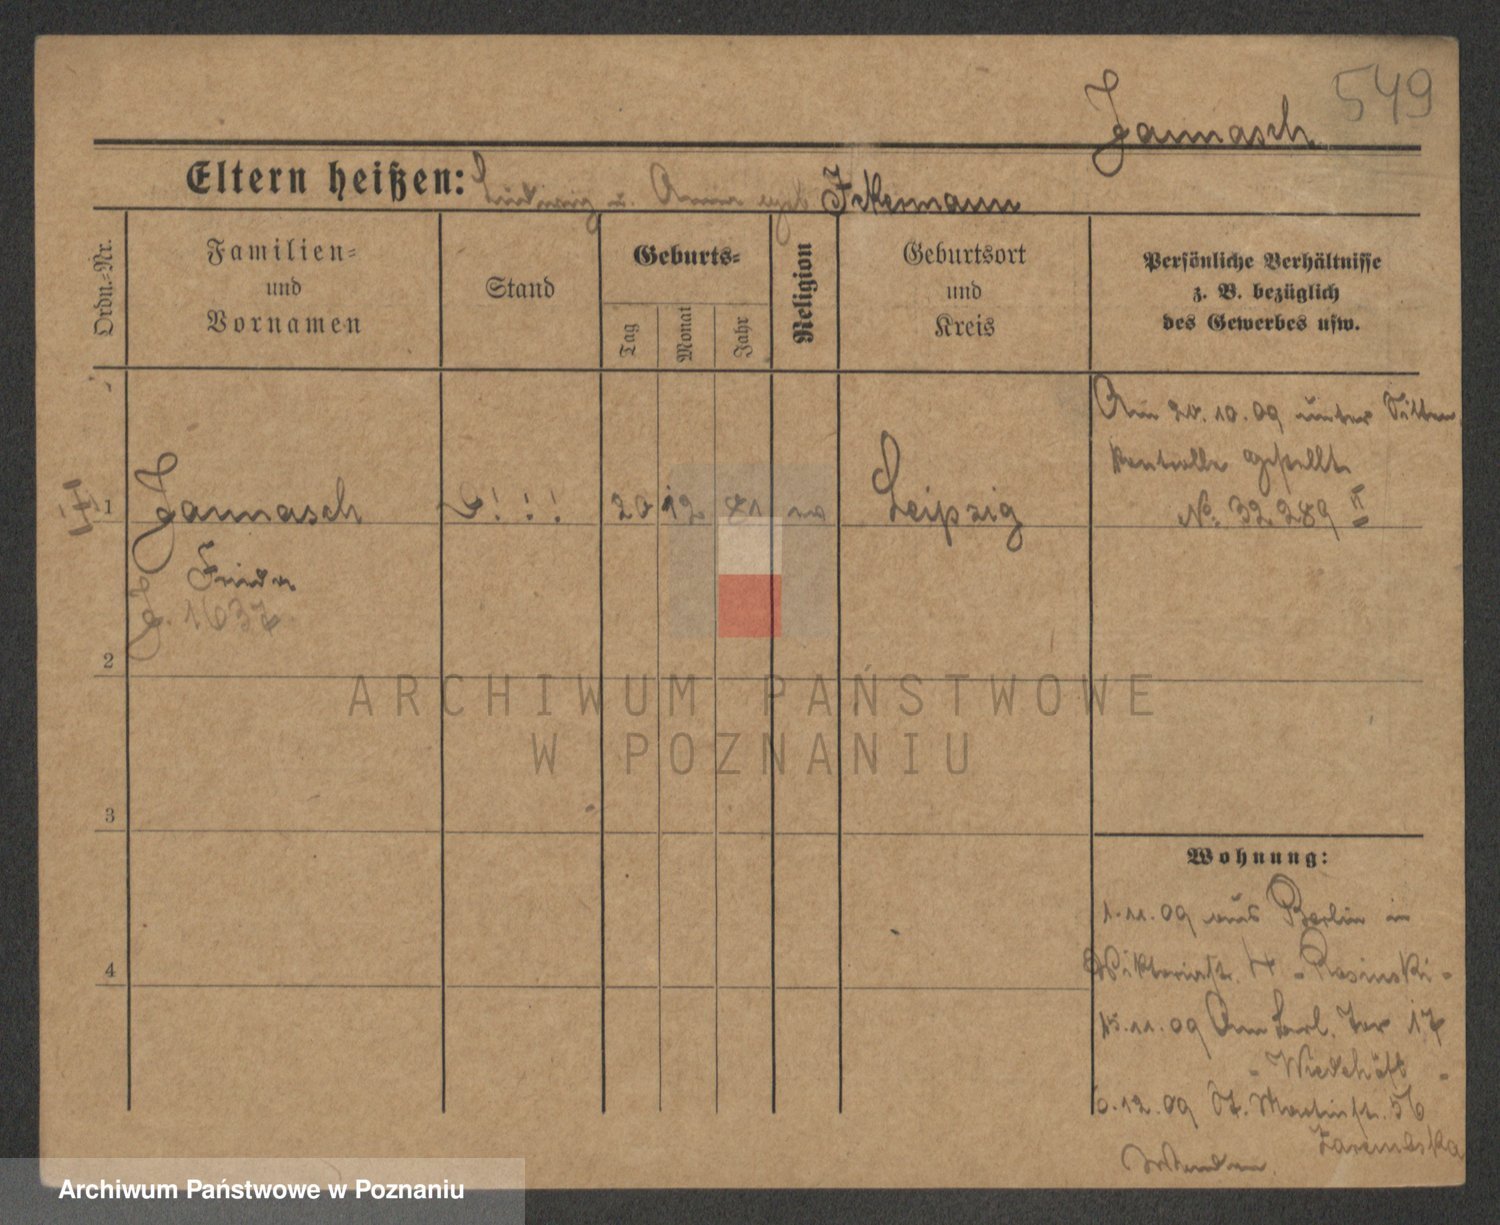 549
Jannasch
Eltern heißen: Ludwig u. Anna geb.
Ordn.-Nr.
Familien-
und
Vornamen
Stand
Geburts-
Tag
Monat
Jahr
Religion
Geburtsort
und
Kreis
Persönliche Verhältnisse
z. B. bezüglich
des Gewerbes usw.
Am 20.10.09 unter Sitten
kontrolle gestellt
No. 32289 II
1
Jannasch
!!!
20 12 81
Leipzig
Frieda
1637
2
3
4
Wohnung:
1.11.09 aus Berlin in
Viktoriastr. - Rosinski -
15.11.09 Am Berl. Tor 17
- Wiedehöft -
6.12.09 St. Martinstr. 56
Zaremska
ARCHIWUM PAŃSTWOWE
W POZNANIU
Archiwum Państwowe w Poznaniu